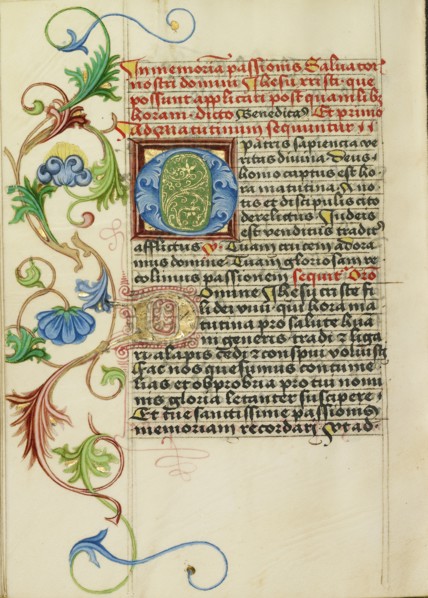 In memoria passionis Saluatoris
nostri domini Ihesu xristi que
possunt applicari post quamlibet
horam dicto Benedicam9 Et primo
ad matutinum sequuntur
Patris sapiencia ve
ritas diuina Deus
homo captus est ho
ra matutina A no
tis et discipulis cito
derelictus Iudeis
est venditus traditus
afflictus V Tuam crucem adora
mus domine Tuam gloriosam re
colimus passionem sequitur Oro
Domine Ihesu criste fi
li dei viui qui hora ma
tutina pro salute hu
mani generis tradi et liga
ri alapis cedi et conspui voluisti
fac nos quesumus contume
lias et obprobria pro tui nomi
nis gloria letanter suscipere
Et tue sanctissime passionis
memoriam recordari Vt ad